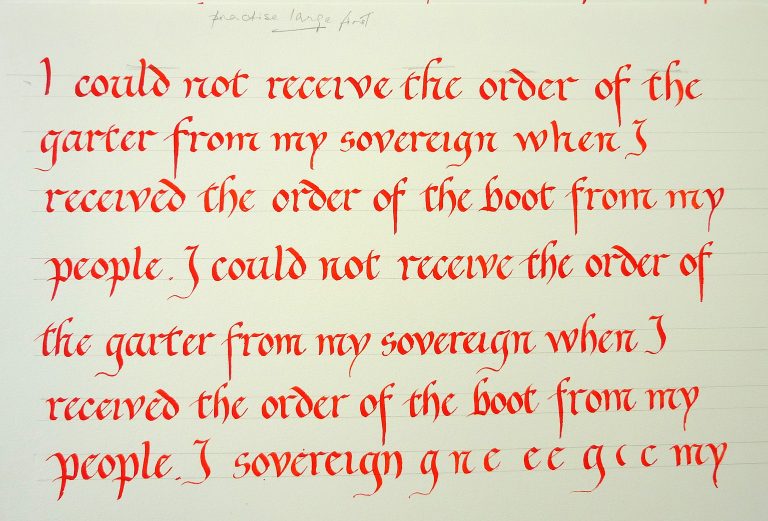 practise large first
I could not receive the order of the
garter from my sovereign when I
received the order of the boot from my
people. I could not receive the order of
the garter from my sovereign when I
received the order of the boot from my
people. I sovereign g n e e e g c c my